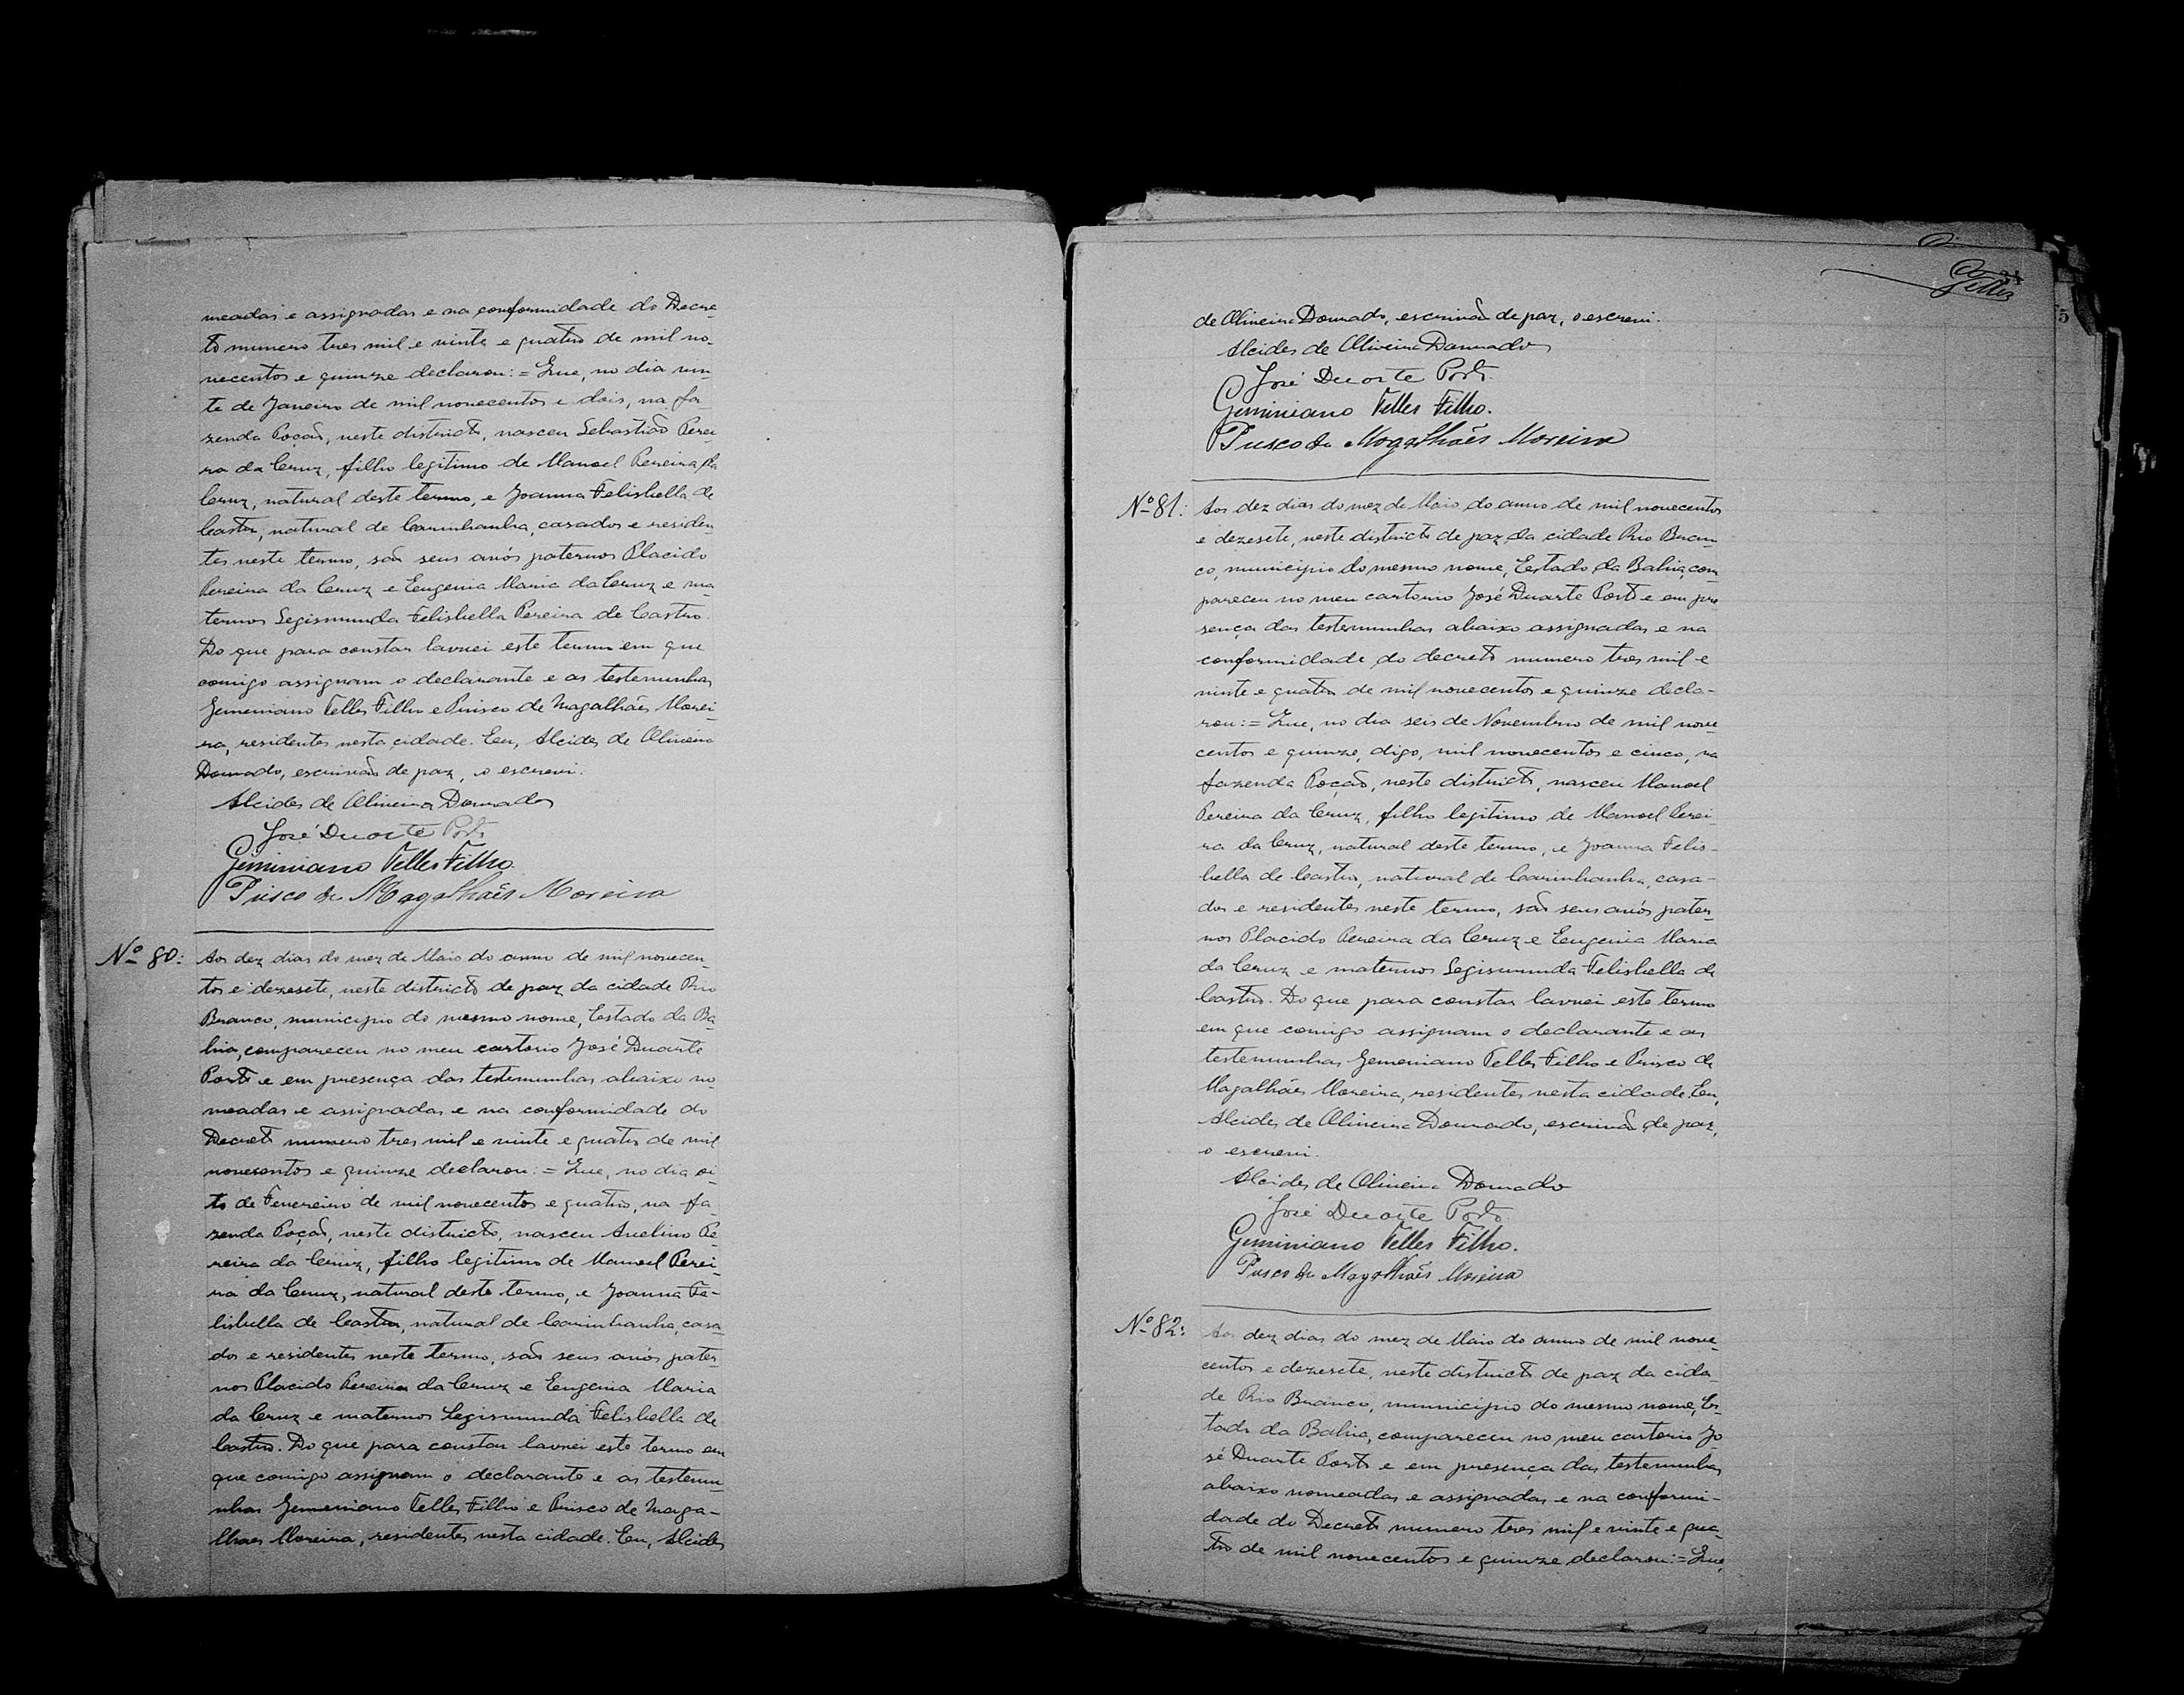 meadas e assignadas e na conformidade do Decre-
to numero tres mil e vinte e quatro de mil no-
vecentos e quinze declarou: = Que, no dia vin-
te de Janeiro de mil novecentos e dois, na fa-
zenda Poção, neste districto, nasceu Sebastião Perei-
ra da Cruz, filho legitimo de Manoel Pereira da
Cruz, natural deste termo, e Joanna Felisbella de
Castro, natural de Carinhanha, casados e residen-
tes neste termo, são seus avós paternos Placido
Pereira da Cruz e Eugenia Maria da Cruz e ma-
ternos Segismunda Felisbella Pereira de Castro.
Do que para constar lavrei este termo em que
comigo assignam o declarante e as testemunhas
Gemeniano Telles Filho e Prisco de Magalhães Morei-
ra, residentes nesta cidade. Eu, Alcides de Oliveira
Dourado, escrivão de paz, o escrevi.
Alcides de Oliveira Dourado
José Duarte Porto
Geminiano Telles Filho.
Prisco de Magalhães Moreira
Nº 80: Aos dez dias do mez de Maio do anno de mil novecen-
tos e dezesete, neste districto de paz da cidade Rio
Branco, municipio do mesmo nome, Estado da Ba-
hia, compareceu no meu cartorio José Duarte
Porto e em presença das testemunhas abaixo no-
meadas e assignadas e na conformidade do
Decreto numero tres mil e vinte e quatro de mil
novecentos e quinze declarou: = Que, no dia oi-
to de Fevereiro de mil novecentos e quatro, na fa-
zenda Poção, neste districto, nasceu Avelino Pe-
reira da Cruz, filho legitimo de Manoel Perei-
ra da Cruz, natural deste termo, e Joanna Fe-
lisbella de Castro, natural de Carinhanha, casa-
dos e residentes neste termo, são seus avós pater-
nos Placido Pereira da Cruz e Eugenia Maria
da Cruz e maternos Segismunda Felisbella de
Castro. Do que para constar lavrei este termo em
que comigo assignam o declarante e as testemu-
nhas Gemeniano Telles Filho e Prisco de Maga-
lhães Moreira, residentes nesta cidade. Eu, Alcides
Telles
5
de Oliveira Dourado, escrivão de paz, o escrevi.
Alcides de Oliveira Dourado
José Duarte Porto.
Geminiano Telles Filho.
Prisco de Magalhães Moreira
Nº 81: Aos dez dias do mez de Maio do anno de mil novecentos
e dezesete, neste districto de paz da cidade Rio Bran-
co, municipio do mesmo nome, Estado da Bahia, com
pareceu no meu cartorio José Duarte Porto e em pre
sença das testemunhas abaixo assignadas e na
conformidade do decreto numero tres mil e
vinte e quatro de mil novecentos e quinze decla-
rou: = Que, no dia seis de Novembro de mil nove
centos e quinze, digo, mil novecentos e cinco, na
fazenda Poção, neste districto, nasceu Manoel
Pereira da Cruz, filho legitimo de Manoel Perei-
ra da Cruz, natural deste termo, e Joanna Felis-
bella de Castro, natural de Carinhanha, casa-
dos e residentes neste termo, são seus avós pater-
nos Placido Pereira da Cruz e Eugenia Maria
da Cruz e maternos Segismunda Felisbella de
Castro. Do que para constar lavrei este termo
em que comigo assignam o declarante e as
testemunhas Gemeniano Telles Filho e Prisco de
Magalhães Moreira, residentes nesta cidade. Eu,
Alcides de Oliveira Dourado, escrivão de paz,
o escrevi.
Alcides de Oliveira Dourado
José Duarte Porto
Geminiano Telles Filho.
Prisco de Magalhães Moreira
Nº 82: Aos dez dias do mez de Maio do anno de mil nove-
centos e dezesete, neste districto de paz da cida-
de Rio Branco, municipio do mesmo nome, Es-
tado da Bahia, compareceu no meu cartorio Jo
sé Duarte Porto e em presença das testemunhas
abaixo nomeadas e assignadas e na conformi-
dade do Decreto numero tres mil e vinte e qua-
tro de mil novecentos e quinze declarou: = Que,